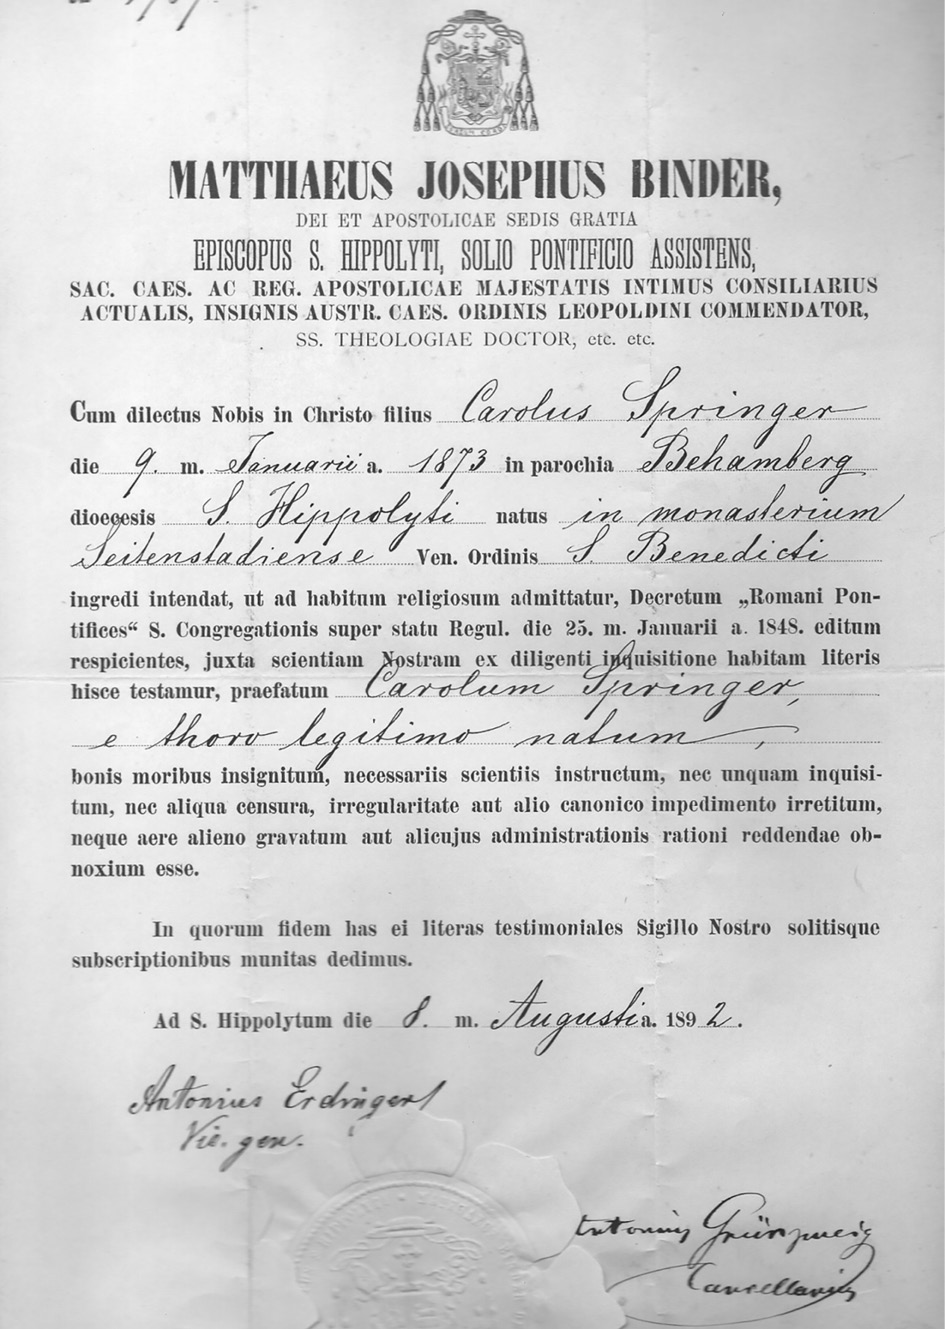 MATTHAEUS JOSEPHUS BINDER,
DEI ET APOSTOLICAE SEDIS GRATIA
EPISCOPUS S. HIPPOLYTI, SOLIO PONTIFICIO ASSISTENS,
SAC. CAES. AC REG. APOSTOLICAE MAJESTATIS INTIMUS CONSILIARIUS
ACTUALIS, INSIGNIS AUSTR. CAES. ORDINIS LEOPOLDINI COMMENDATOR,
SS. THEOLOGIAE DOCTOR, etc. etc.
Cum dilectus Nobis in Christo filius Carolus Springer
die 9. m. Januarii a. 1873 in parochia Behamberg
dioecesis S. Hippolyti natus in monasterium
Seitenstadiense Ven. Ordinis S. Benedicti
ingredi intendat, ut ad habitum religiosum admittatur, Decretum „Romani Pon-
tifices“ S. Congregationis super statu Regul. die 25. m. Januarii a. 1848. editum
respicientes, juxta scientiam Nostram ex diligenti inquisitione habitam literis
hisce testamur, praefatum Carolum Springer,
e thoro legitimo natum,
bonis moribus insignitum, necessariis scientiis instructum, nec unquam inquisi-
tum, nec aliqua censura, irregularitate aut alio canonico impedimento irretitum,
neque aere alieno gravatum aut alicujus administrationis rationi reddendae ob-
noxium esse.
In quorum fidem has ei literas testimoniales Sigillo Nostro solitisque
subscriptionibus munitas dedimus.
Ad S. Hippolytum die 8. m. Augusti a. 1892.
Antonius Erdinger
Vic. gen.
Antonius Grünzweig
Cancellarius